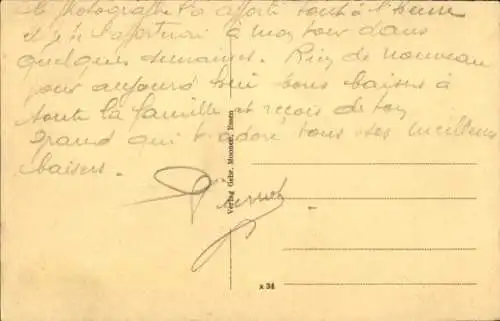 le photographe l'a apporté tout à l'heure
et je t'apporterai à mon tour dans
quelques semaines. Rien de nouveau
pour aujourd'hui bons baisers à
toute la famille et reçois de ton
grand qui t'adore tous ses meilleurs
baisers.
Pierrot
Verlag Gebr. Moonen, Essen
x 34